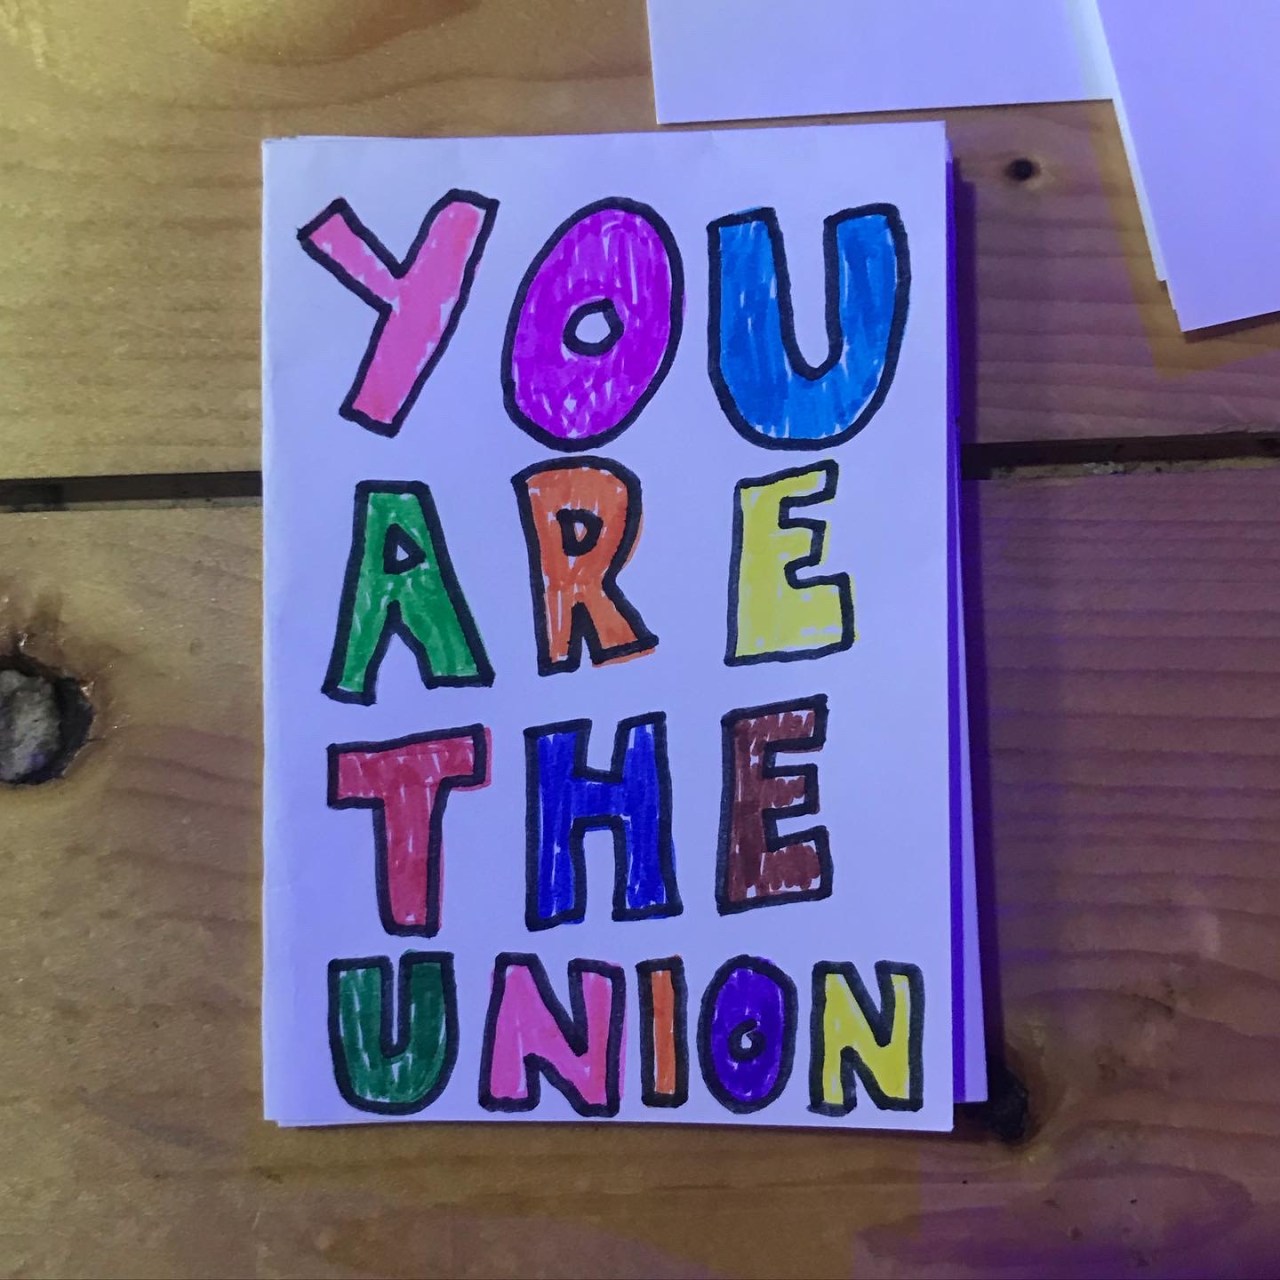 YOU
ARE
THE
UNION